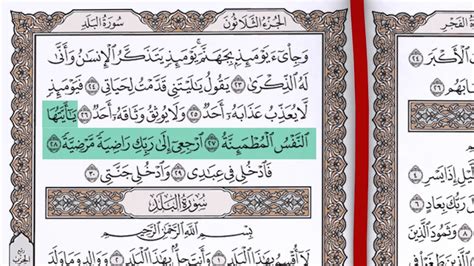 الجُزْءُ الثَّلَاثُونَ سُورَةُ البَلَدِ
وَجِاْىٓءَ يَوْمَئِذٍۭ بِجَهَنَّمَۚ يَوْمَئِذٍ يَتَذَكَّرُ ٱلْإِنسَٰنُ وَأَنَّىٰ
لَهُ ٱلذِّكْرَىٰ ٢٣ يَقُولُ يَٰلَيْتَنِى قَدَّمْتُ لِحَيَاتِى ٢٤ فَيَوْمَئِذٍ
لَّا يُعَذِّبُ عَذَابَهُۥٓ أَحَدٌ ٢٥ وَلَا يُوثِقُ وَثَاقَهُۥٓ أَحَدٌ ٢٦ يَٰٓأَيَّتُهَا
ٱلنَّفْسُ ٱلْمُطْمَئِنَّةُ ٢٧ ٱرْجِعِىٓ إِلَىٰ رَبِّكِ رَاضِيَةً مَّرْضِيَّةً ٢٨
فَٱدْخُلِى فِى عِبَٰدِى ٢٩ وَٱدْخُلِى جَنَّتِى ٣٠
سُورَةُ البَلَدِ
بِسْمِ ٱللَّهِ ٱلرَّحْمَٰنِ ٱلرَّحِيمِ
لَآ أُقْسِمُ بِهَٰذَا ٱلْبَلَدِ ١ وَأَنتَ حِلٌّۢ بِهَٰذَا ٱلْبَلَدِ ٢ وَوَالِدٍ وَمَا وَلَدَ
سُورَةُ الفَجْرِ
إِذَا يَسْرِ
رَبُّكَ بِعَادٍ